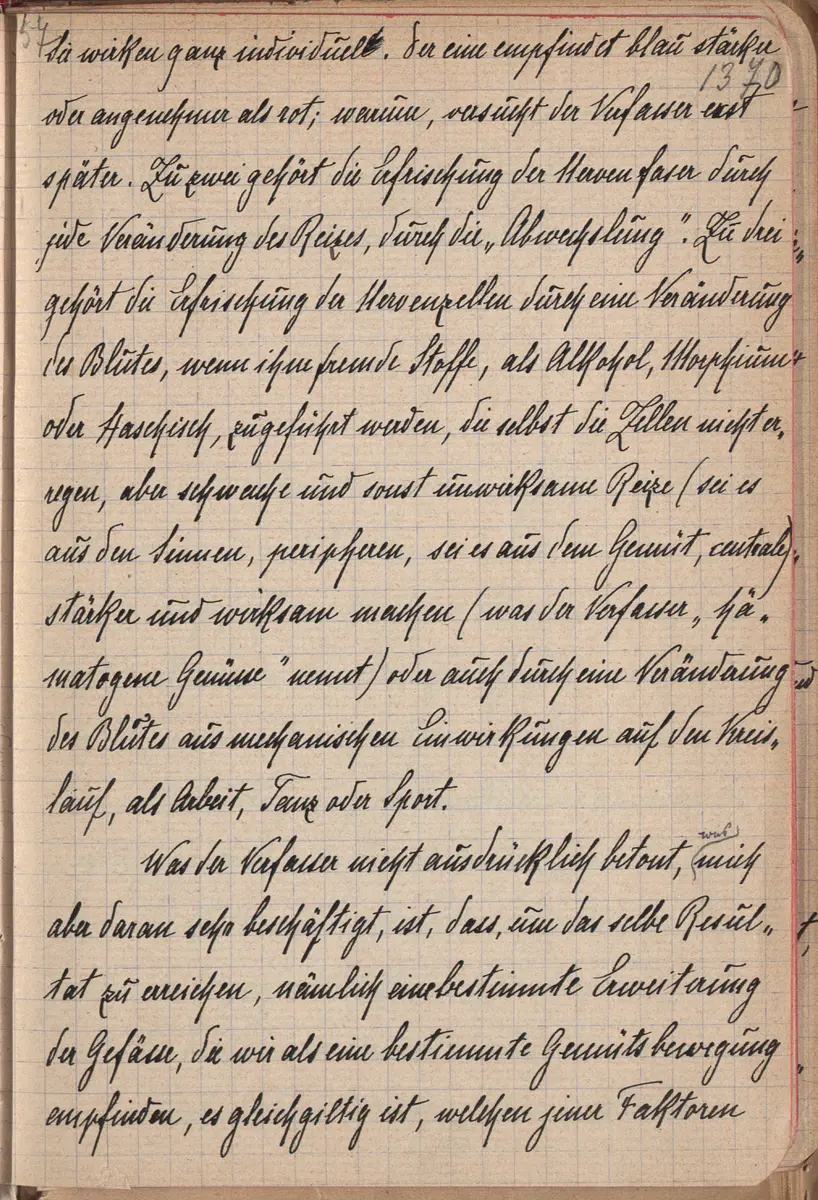 57
1370
Sie wirken ganz individuell. Der eine empfindet blau stärker
oder angenehmer als rot; warum, versucht der Verfasser erst
später. Zu zwei gehört die Erfrischung der Nervenfaser durch
jede Veränderung des Reizes, durch die „Abwechslung". Zu drei
gehört die Erfrischung der Nervenzellen durch eine Veränderung
des Blutes, wenn ihm fremde Stoffe, als Alkohol, Morphium
oder Haschisch, zugeführt werden, die selbst die Zellen nicht er„
regen, aber schwache und sonst unwirksame Reize (sei es
aus den Sinnen, peripheren, sei es aus dem Gemüt, centrale)
stärker und wirksam machen (was der Verfasser „hä„
matogene Genüsse" nennt) oder auch durch eine Veränderung
des Blutes aus mechanischen Einwirkungen auf den Kreis„
lauf, als Arbeit, Tanz oder Sport.
Was der Verfasser nicht ausdrücklich betont, was mich
aber daran sehr beschäftigt, ist, dass, um das selbe Resul„
tat zu erreichen, nämlich eine bestimmte Erweiterung
der Gefässe, die wir als eine bestimmte Gemütsbewegung
empfinden, es gleichgiltig ist, welchen jener Faktoren